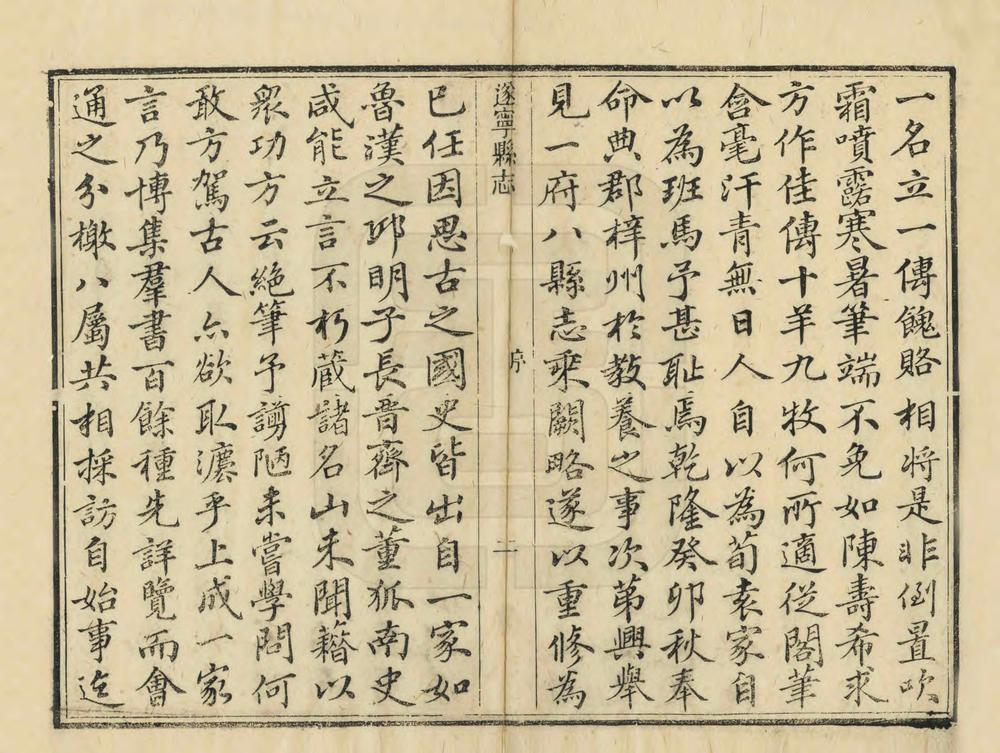 一名立一傳餽賂相將是非倒置吹
霜噴露寒暑筆端不免如陳壽希求
方作佳傳十羊九牧何所適從閣筆
含毫汗青無日人自以為荀袁家自
以為班馬予甚耻焉乾隆癸卯秋奉
命典郡梓州於教養之事次苐興舉
見一府八縣志乘闕略遂以重修為
遂寧縣志
序
二
已任因思古之國史皆出自一家如
魯漢之邱明子長晋齊之董狐南史
咸能立言不朽蔵諸名山未聞藉以
衆功方云絶筆予謭陋未嘗學問何
敢方駕古人亦欲取濹乎上成一家
言乃博集羣書百餘種先詳覽而會
通之分檄八屬共相採訪自始事迄